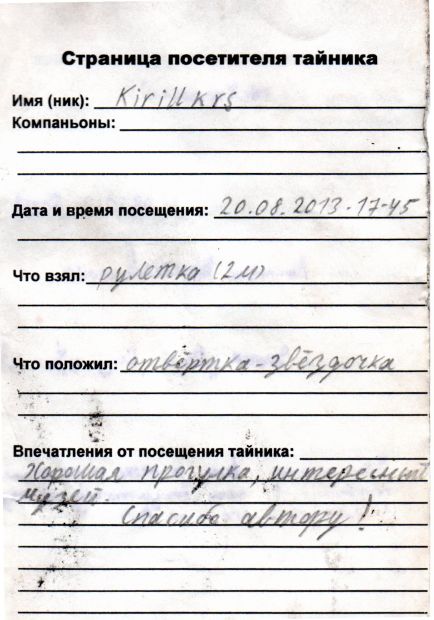 Страница посетителя тайника
Имя (ник): Kirill krs
Компаньоны:
Дата и время посещения: 20.08.2013 - 17-45
Что взял: рулетка (2м)
Что положил: отвёртка-звёздочка
Впечатления от посещения тайника:
Хорошая прогулка, интересный
музей.
Спасибо автору!